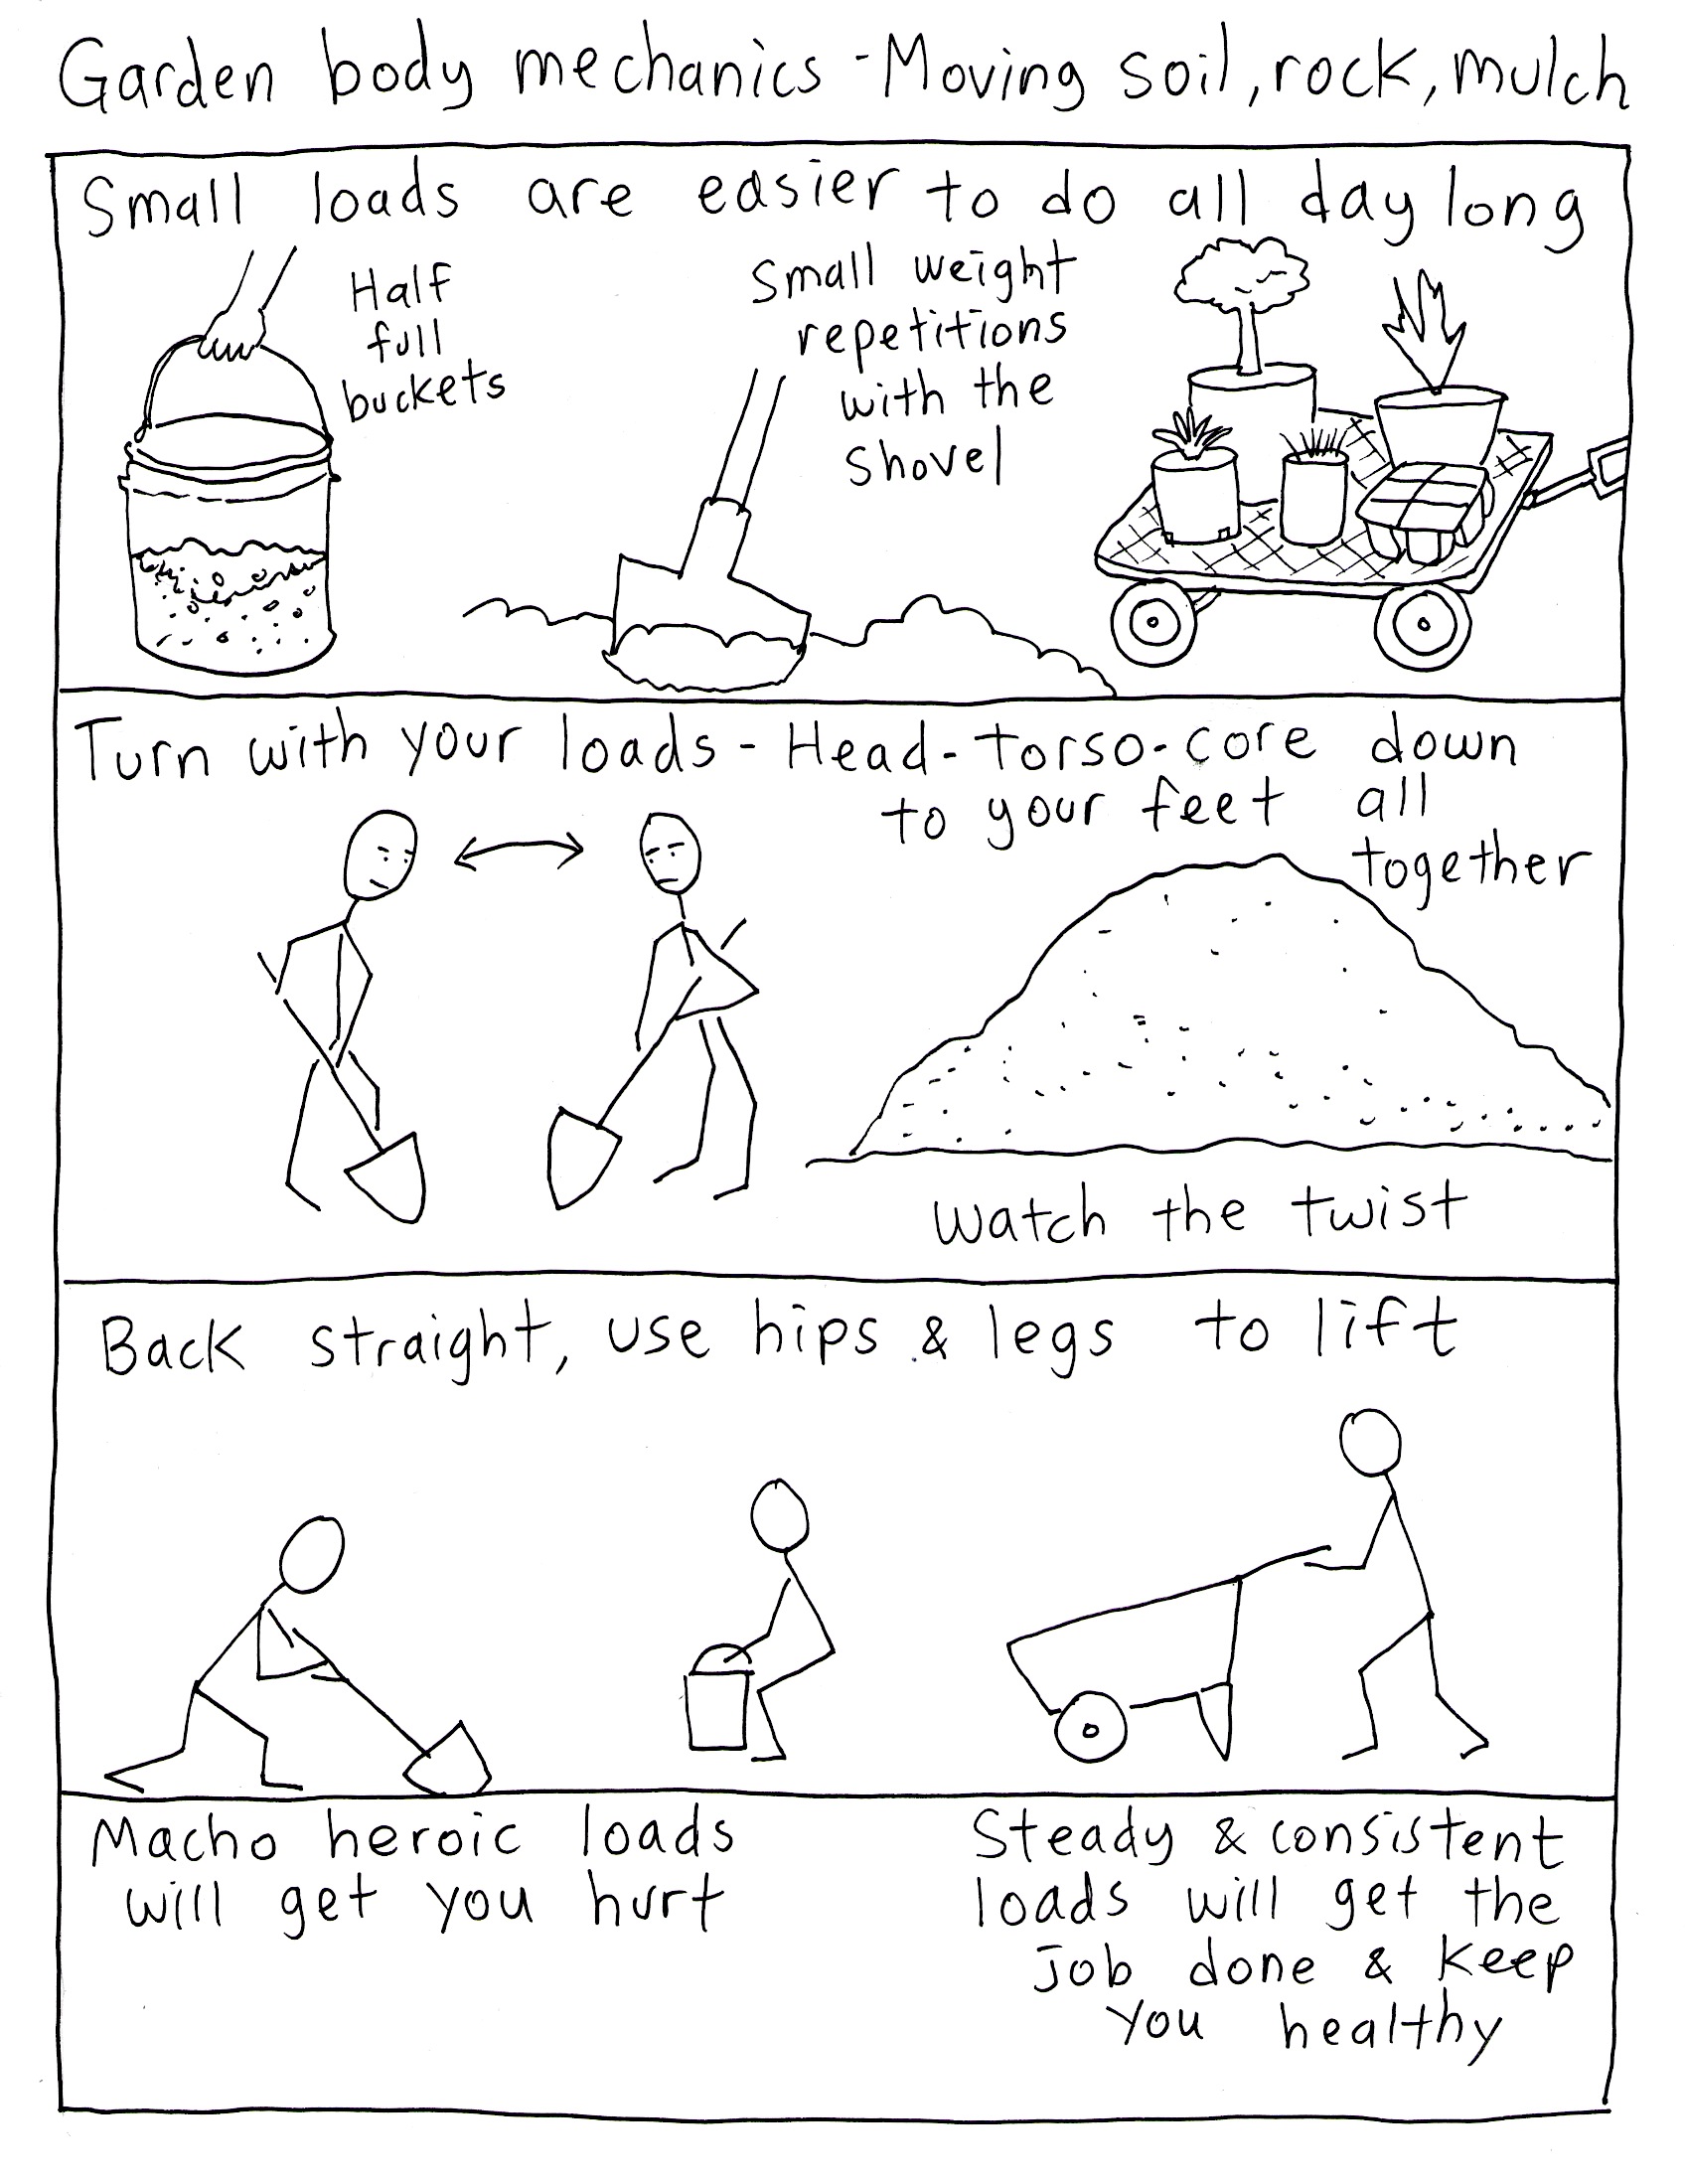 Garden body mechanics - Moving soil, rock, mulch
Small loads are easier to do all day long
Half
full
buckets
Small weight
repetitions
with the
shovel
Turn with your loads - Head - torso - core down
to your feet all
together
Watch the twist
Back straight, use hips & legs to lift
Macho heroic loads
will get you hurt
Steady & consistent
loads will get the
job done & keep
you healthy